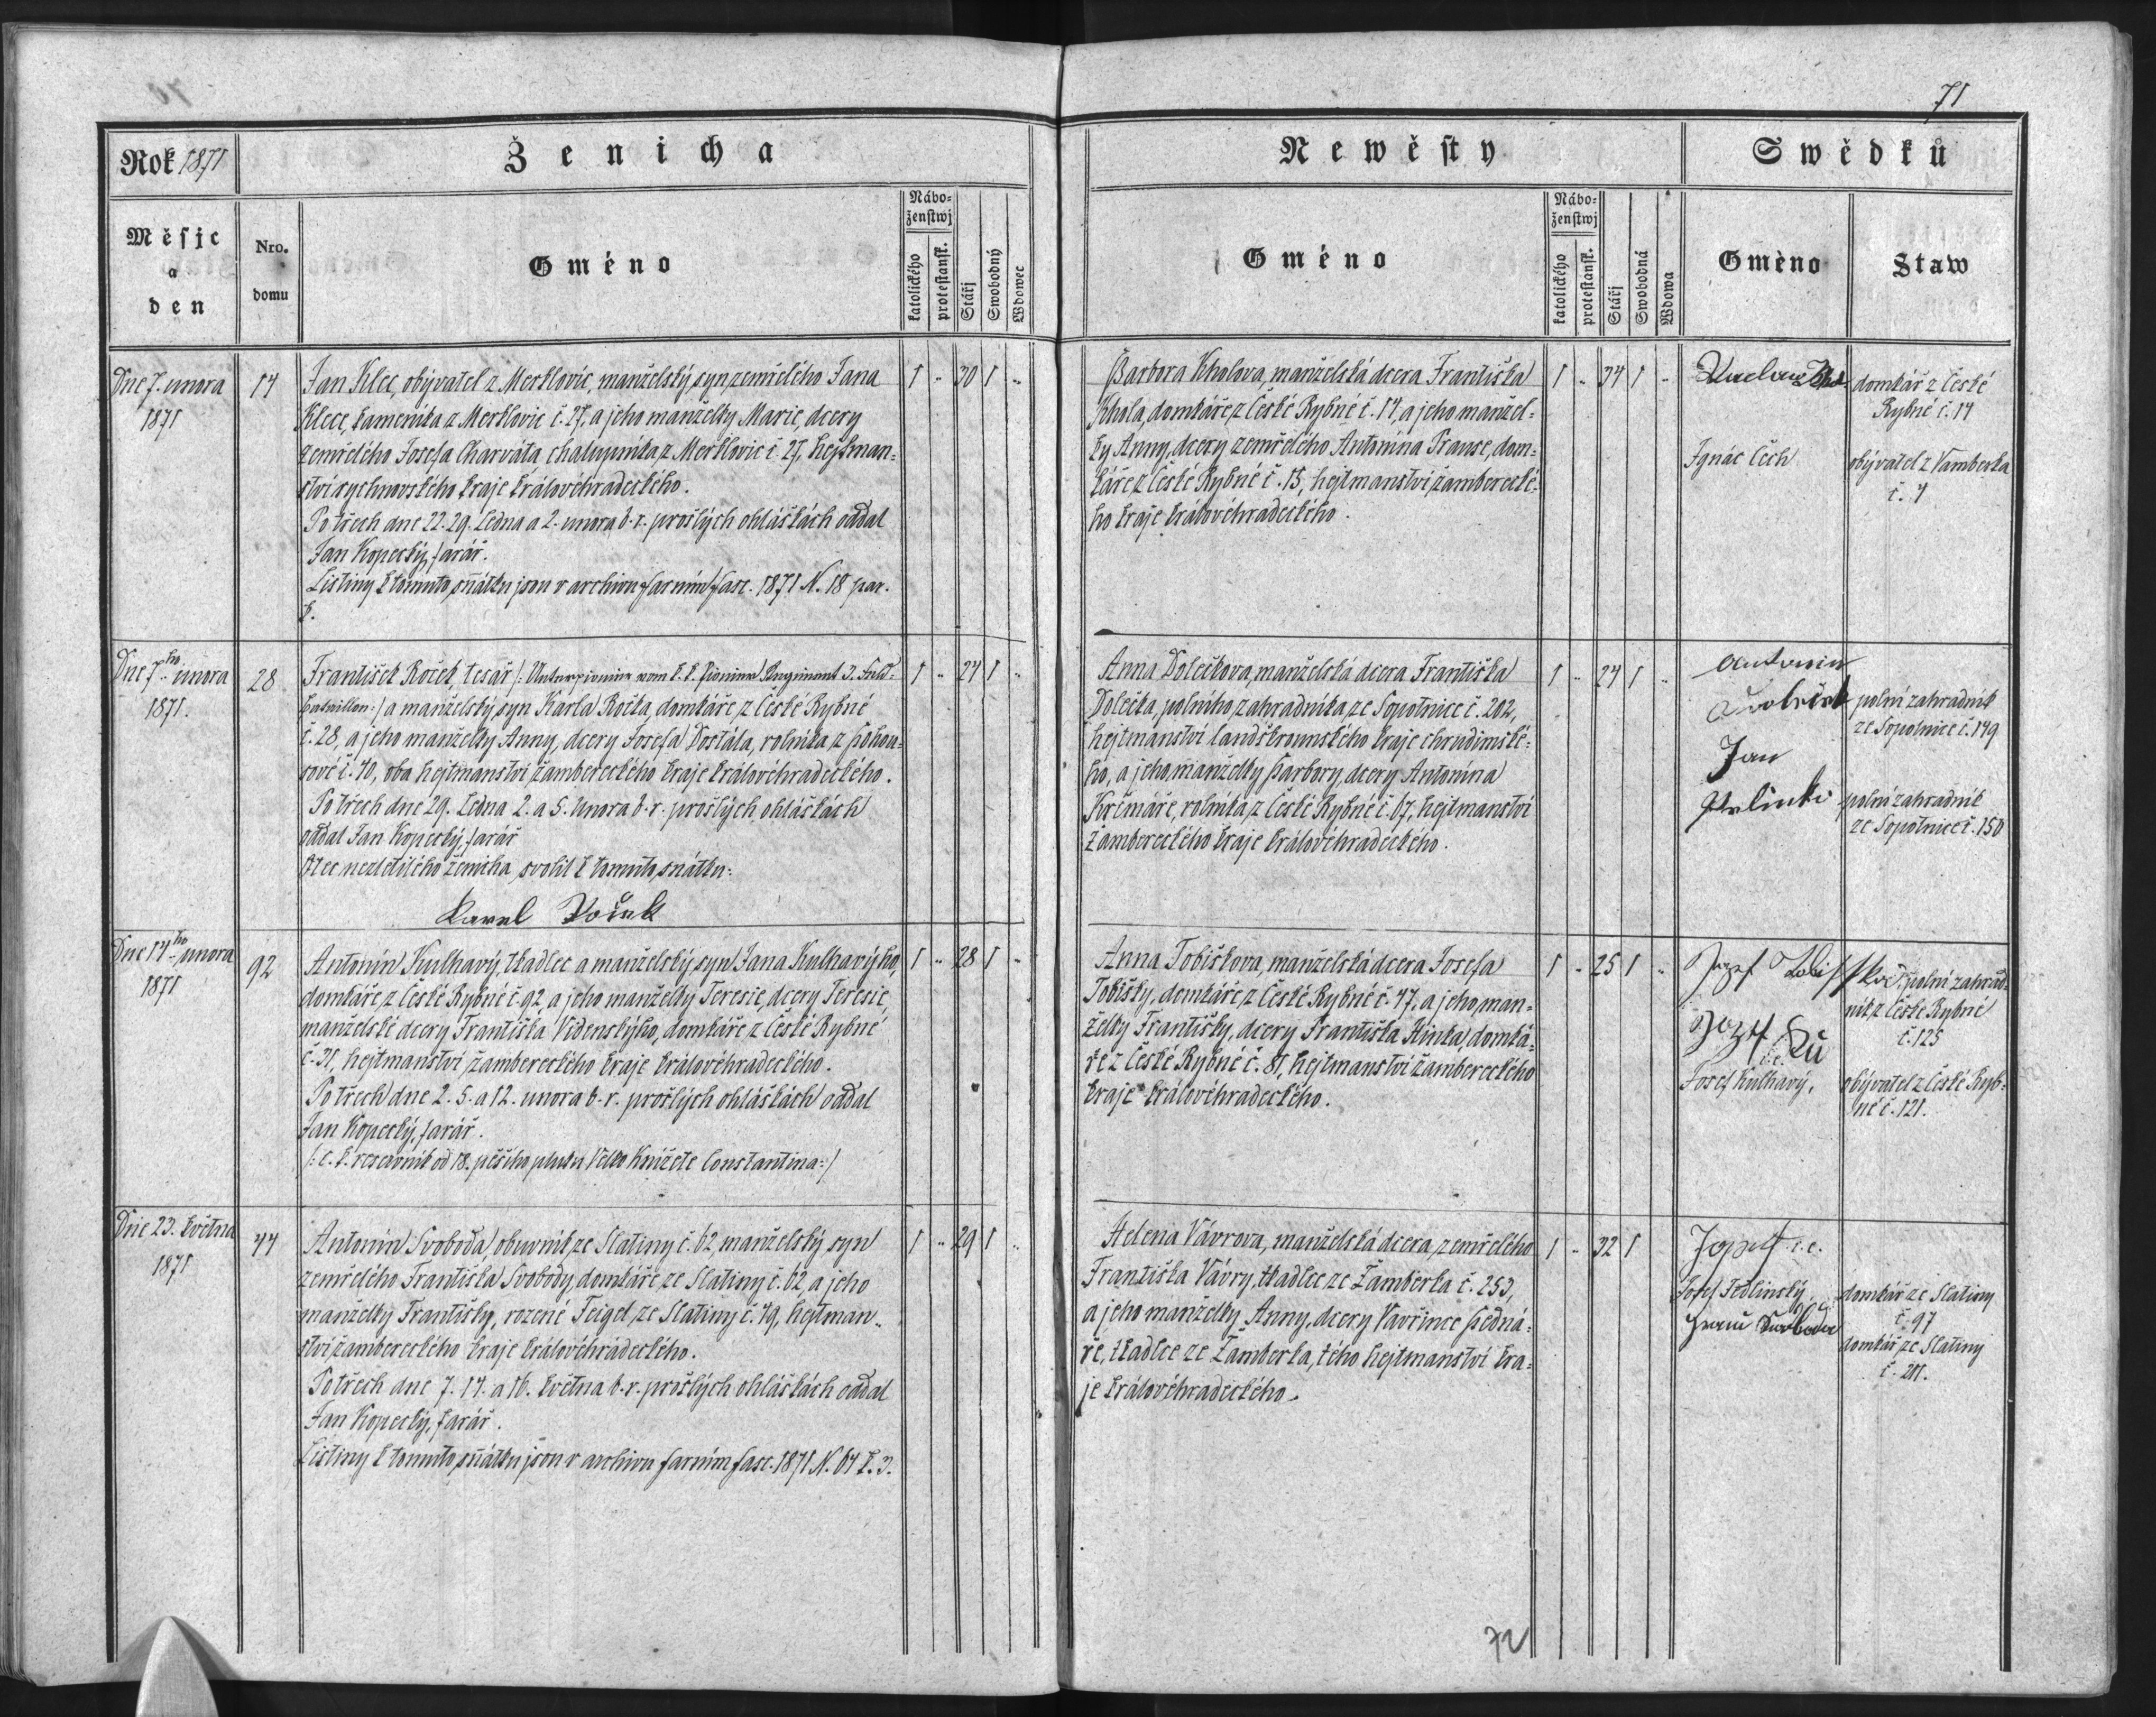 71
Rok 1871
Ženicha
Newěsty
Swědků
Měsjc
a
den
Nro.
domu
Gméno
Nábo-
ženstwj
katolického
protestansk.
Stářj
Swobodný
Wdowec
Gméno
Nábo-
ženstwj
katolického
protestansk.
Stářj
Swobodná
Wdowa
Gméno
Staw
Dne 7. unora
1871
14
Jan Klec, obývatel z Merklovic, manželský syn zemřelého Jana
Klece, kameníka z Merklovic č. 27, a jeho manželky Marie, dcery
zemřelého Josefa Charváta chalupníka z Merklovic č. 27, hejtman-
ství rychnovského kraje královéhradeckého.
Po třech dne 22. 29. ledna a 2. unora b. r. prošlých ohláškách oddal
Jan Kopecký, farář.
Listiny k tomuto sňátku jsou v archivu farním fasc. 1871 N. 18 par.
k.
1 " 30 1 "
Barbora Kholova, manželská dcera Františka
Khola, domkáře z České Rybné č. 14, a jeho manžel-
ky Anny, dcery zemřelého Antonína Prause, dom-
káře z České Rybné č. 15, hejtmanství žambereckè-
ho kraje královéhradeckého.
1 " 34 1 "
domkář z České
Rybné č. 14
Ignác Čech
obývatel z Vamberka
č. 4
Dne 7ho unora
1871.
28
František Roček tesař /: Unterpionier vom k. k. Pionier Regiment 3. Feld-
bataillon :/ a manželský syn Karla Ročka, domkáře z České Rybné
č. 28, a jeho manželky Anny, dcery Josefa Dostála, rolníka z Pohou-
sové č. 10, oba hejtmanství žambereckého kraje královéhradeckého.
Po třech dne 29. ledna 2. a 5. unora b. r. prošlých ohláškách
oddal Jan Kopecký, farář
Otec nezletilého ženicha svolil k tomuto snátku:
Karel Roček
1 " 24 1 "
Anna Dolečkova, manželská dcera Františka
Dolečka, polního zahradníka ze Sopotnice č. 202,
hejtmanství landškrounského kraje chrudimské-
ho, a jeho manželky Barbory, dcery Antonína
Krčmáře, rolníka z České Rybné č. 67, hejtmanství
žambereckého kraje královéhradeckého.
1 " 24 1 "
Antonin
polní zahradník
ze Sopotnice č. 149
Jan
polní zahradník
ze Sopotnice č. 150
Dne 14ho unora
1871
92
Antonín Kulhavý, tkadlec a manželský syn Jana Kulhavýho,
domkáře z České Rybné č. 92 a jeho manželky Teresie, dcery Teresie,
manželské dcery Františka Videnskýho, domkáře z České Rybné
č. 31, hejtmanství žambereckého kraje královéhradeckého.
Po třech dne 2. 5. a 12. unora b. r. prošlých ohláškách oddal
Jan Kopecký, farář.
/: c. k. reservník od 18. pěšího pluku Velko Knížete Constantina :/
1 " 28 1 "
Anna Tobiškova, manželská dcera Josefa
Tobišky, domkáře z České Rybné č. 47, a jeho man-
želky Františky, dcery Františka Hinka, domká-
ře z České Rybné č. 81, hejtmanství žambereckého
kraje královéhradeckého.
1 " 25 1 "
Jozef Tobisska
polní zahrad-
ník z České Rybné
č. 125
Jozef Ku
Josef Kulhavý,
obývatel z České Ryb-
né č. 121.
Dne 23. května
1871
44
Antonín Svoboda, obuvník ze Slatiny č. 62, manželský syn
zemřelého Františka Svobody, domkáře ze Slatiny č. 62, a jeho
manželky Františky, rozené Feigel, ze Slatiny č. 49, hejtman-
ství žambereckého kraje královéhradeckého.
Po třech dne 7. 14. a 16. května b. r. prošlých ohláškách oddal
Jan Kopecký, farář.
Listiny k tomuto sňátku jsou v archivu farním fasc. 1871 N. 64 k. 3.
1 " 29 1 "
Helena Vávrova, manželská dcera zemřelého
Františka Vávry, tkadlce ze Žamberka č. 253,
a jeho manželky Anny, dcery Vavřince Bedná-
ře, tkadlce ze Žamberka, tého hejtmanství kra-
je královéhradeckého.
1 " 32 1
Josef Jedlinský,
domkář ze Slatiny
č. 97
Svoboda
domkář ze Slatiny
72